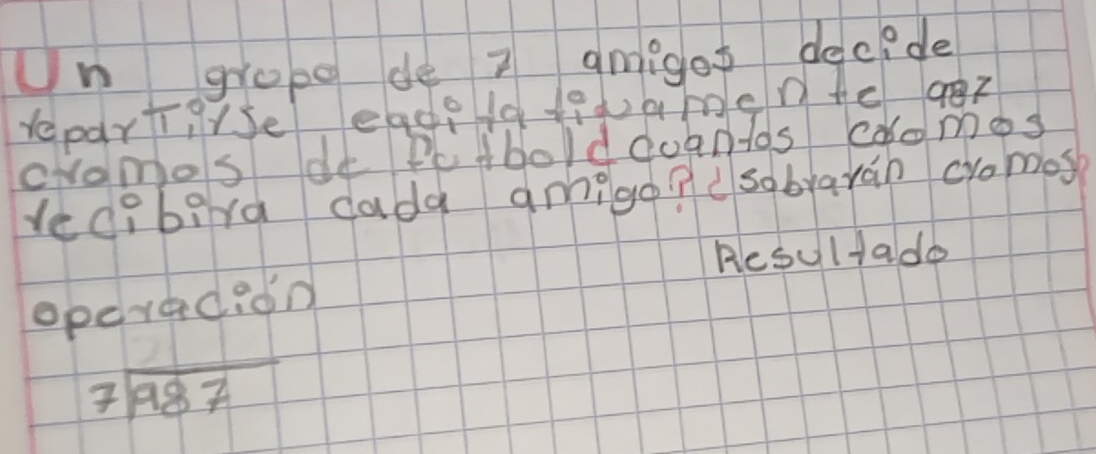 Un grupo de 7 amigos decide
repartirse eqditatiuamente 987
cromos de futbol ¿cuantos cromos
recibira cada amigo? ¿sobrarán cromos?
Resultado
operación
7 987